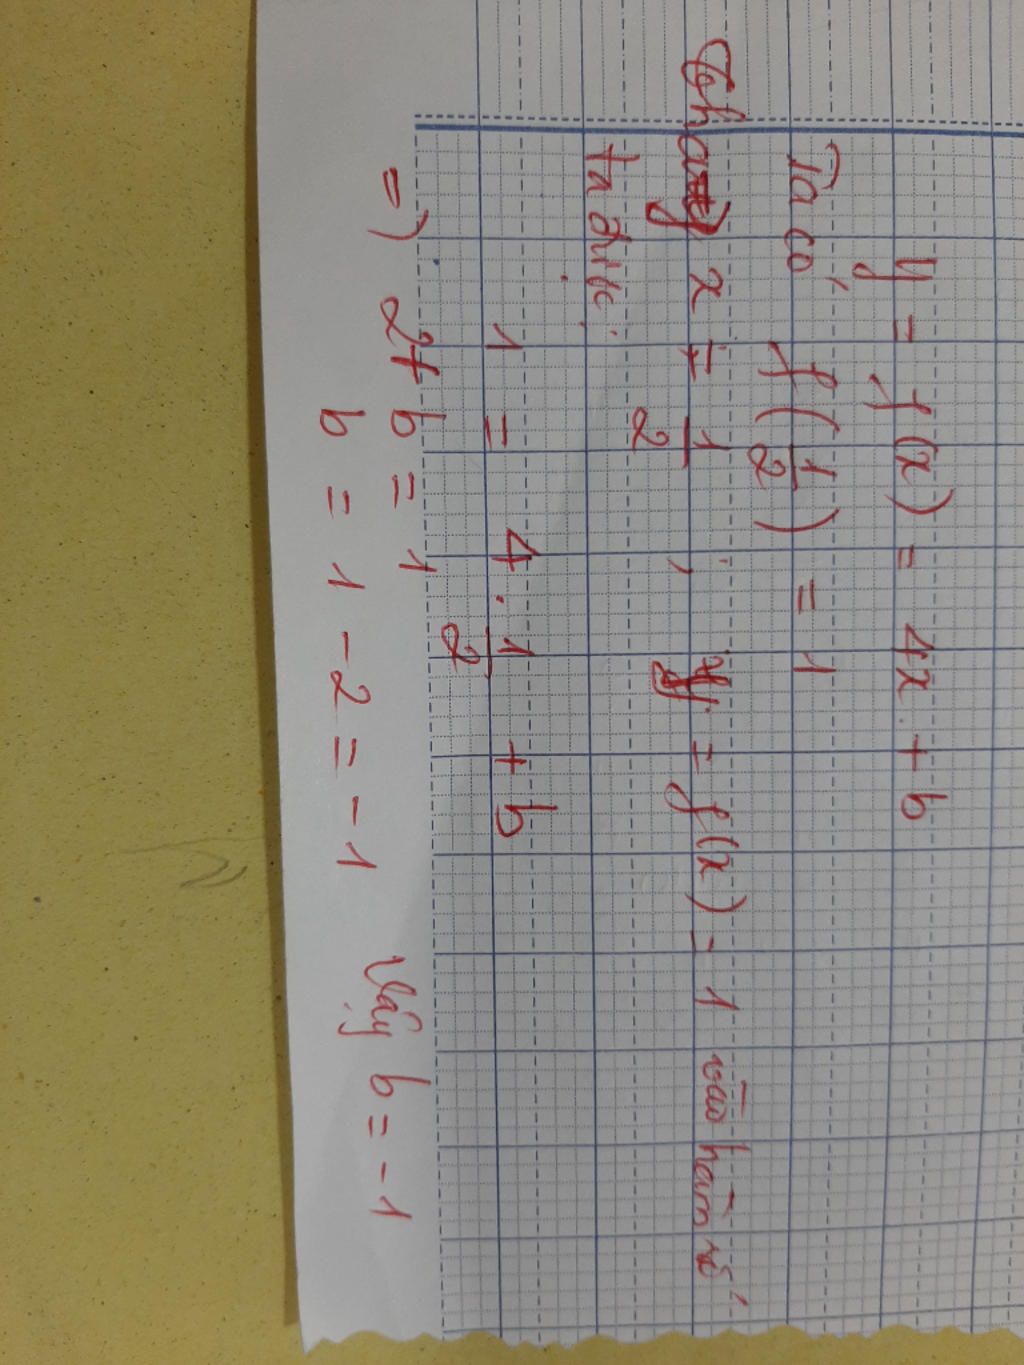 y = f(x) = 4x + b
Ta có f(1/2) = 1
Thay x = 1/2 ; y = f(x) = 1 vào hàm số
ta được:
1 = 4 . 1/2 + b
=) 2 + b = 1
b = 1 - 2 = -1 Vậy b = -1